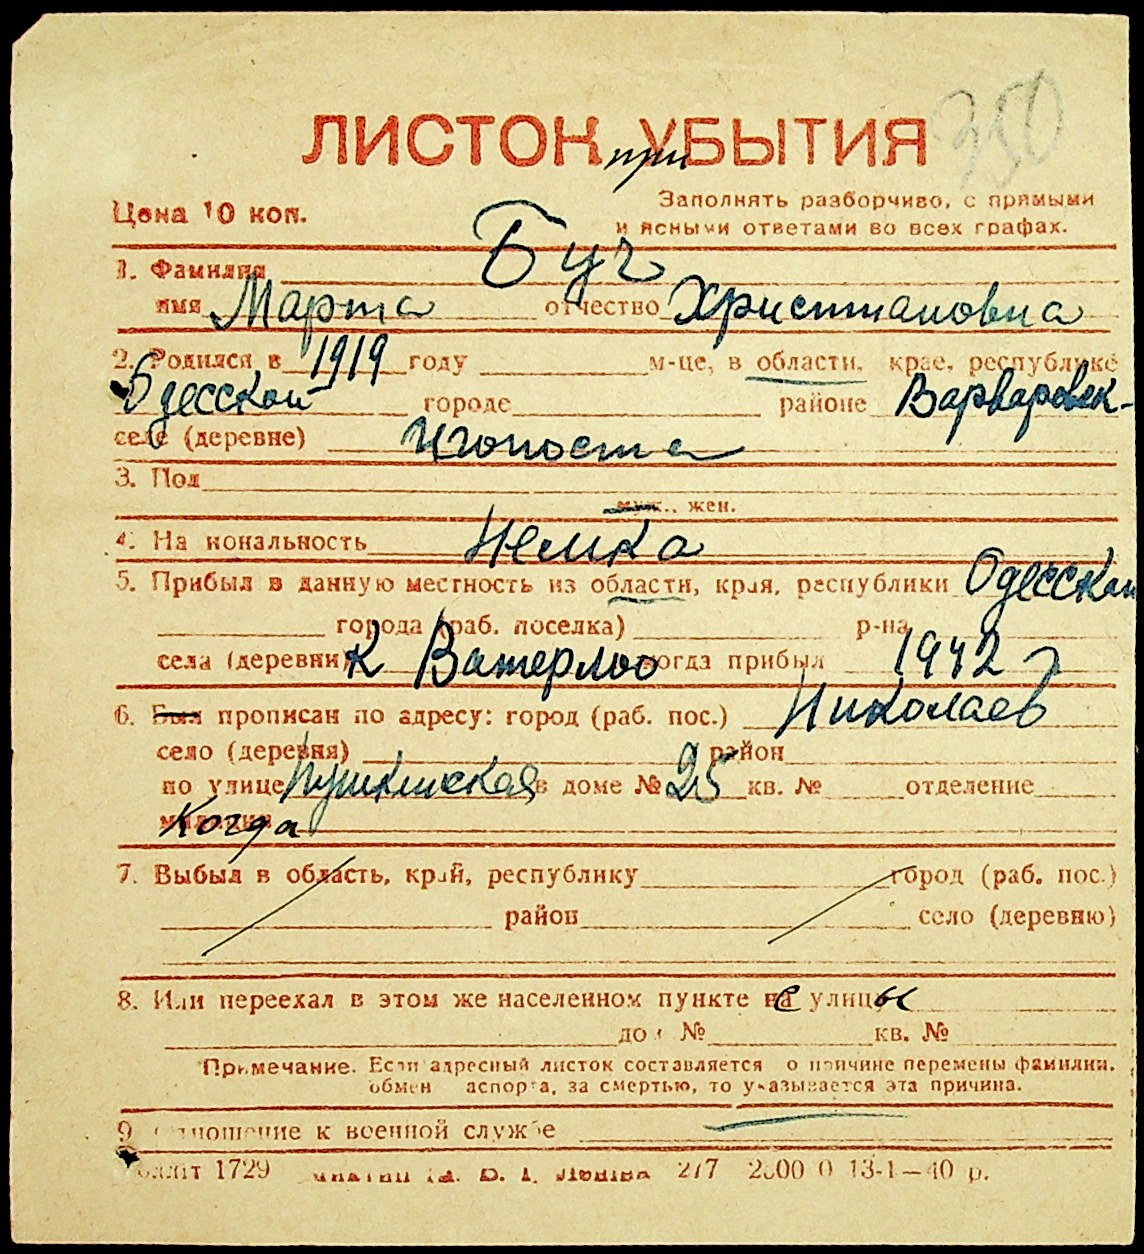 350
ЛИСТОК при УБЫТИЯ
Цена 10 коп.
Заполнять разборчиво, с прямыми
и ясными ответами во всех графах.
1. Фамилия Буч
имя Марта отчество Христиановна
2. Родился в 1919 году м-це, в области, крае, республике
Одесской городе районе Варваровск-
селе (деревне)
3. Пол
муж., жен.
4. Национальность Немка
5. Прибыл в данную местность из области, края, республики Одесской
города (раб. поселка) р-на
села (деревни) К Ватерлоо когда прибыл 1942 г
6. Был прописан по адресу: город (раб. пос.) Николаев
село (деревня) район
по улице Пушкинская в доме № 25 кв. № отделение
милиции Когда
7. Выбыл в область, край, республику город (раб. пос.)
район село (деревню)
8. Или переехал в этом же населенном пункте с улицы
дом № кв. №
Примечание. Если адресный листок составляется по причине перемены фамилии,
обмен паспорта, за смертью, то указывается эта причина.
9. Отношение к военной службе
1729 277 2000 0 13-1—40 р.